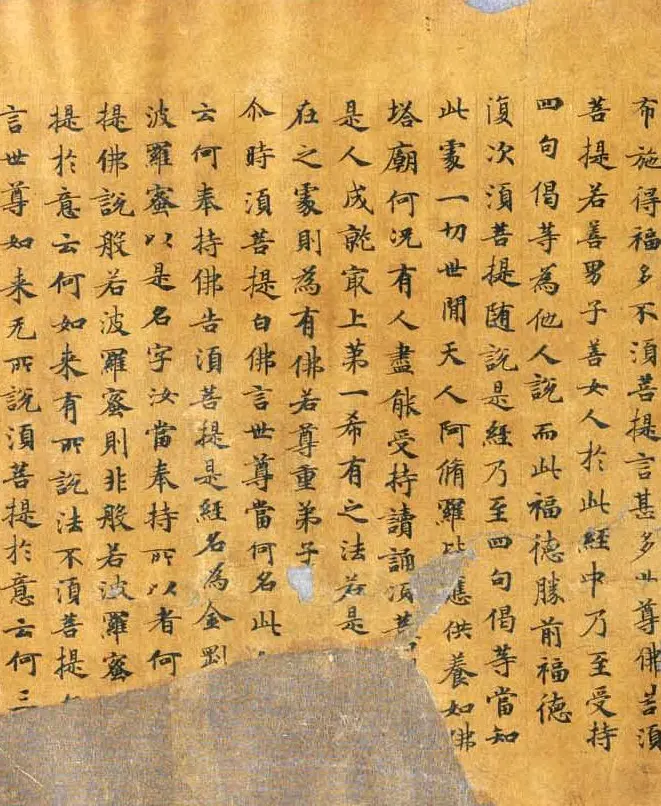 布施得福多不須菩提言甚多世尊佛告須
菩提若善男子善女人於此經中乃至受持
四句偈等為他人說而此福德勝前福德
復次須菩提随說是經乃至四句偈等當知
此處一切世間天人阿脩羅皆應供養如佛
塔廟何況有人盡能受持讀誦須菩
是人成就冣上第一希有之法若是
在之處則為有佛若尊重弟子
尒時須菩提白佛言世尊當何名此
云何奉持佛告須菩提是經名為金剛
波羅蜜以是名字汝當奉持所以者何
提佛說般若波羅蜜則非般若波羅蜜
提於意云何如来有所說法不須菩提
言世尊如来无所說須菩提於意云何三